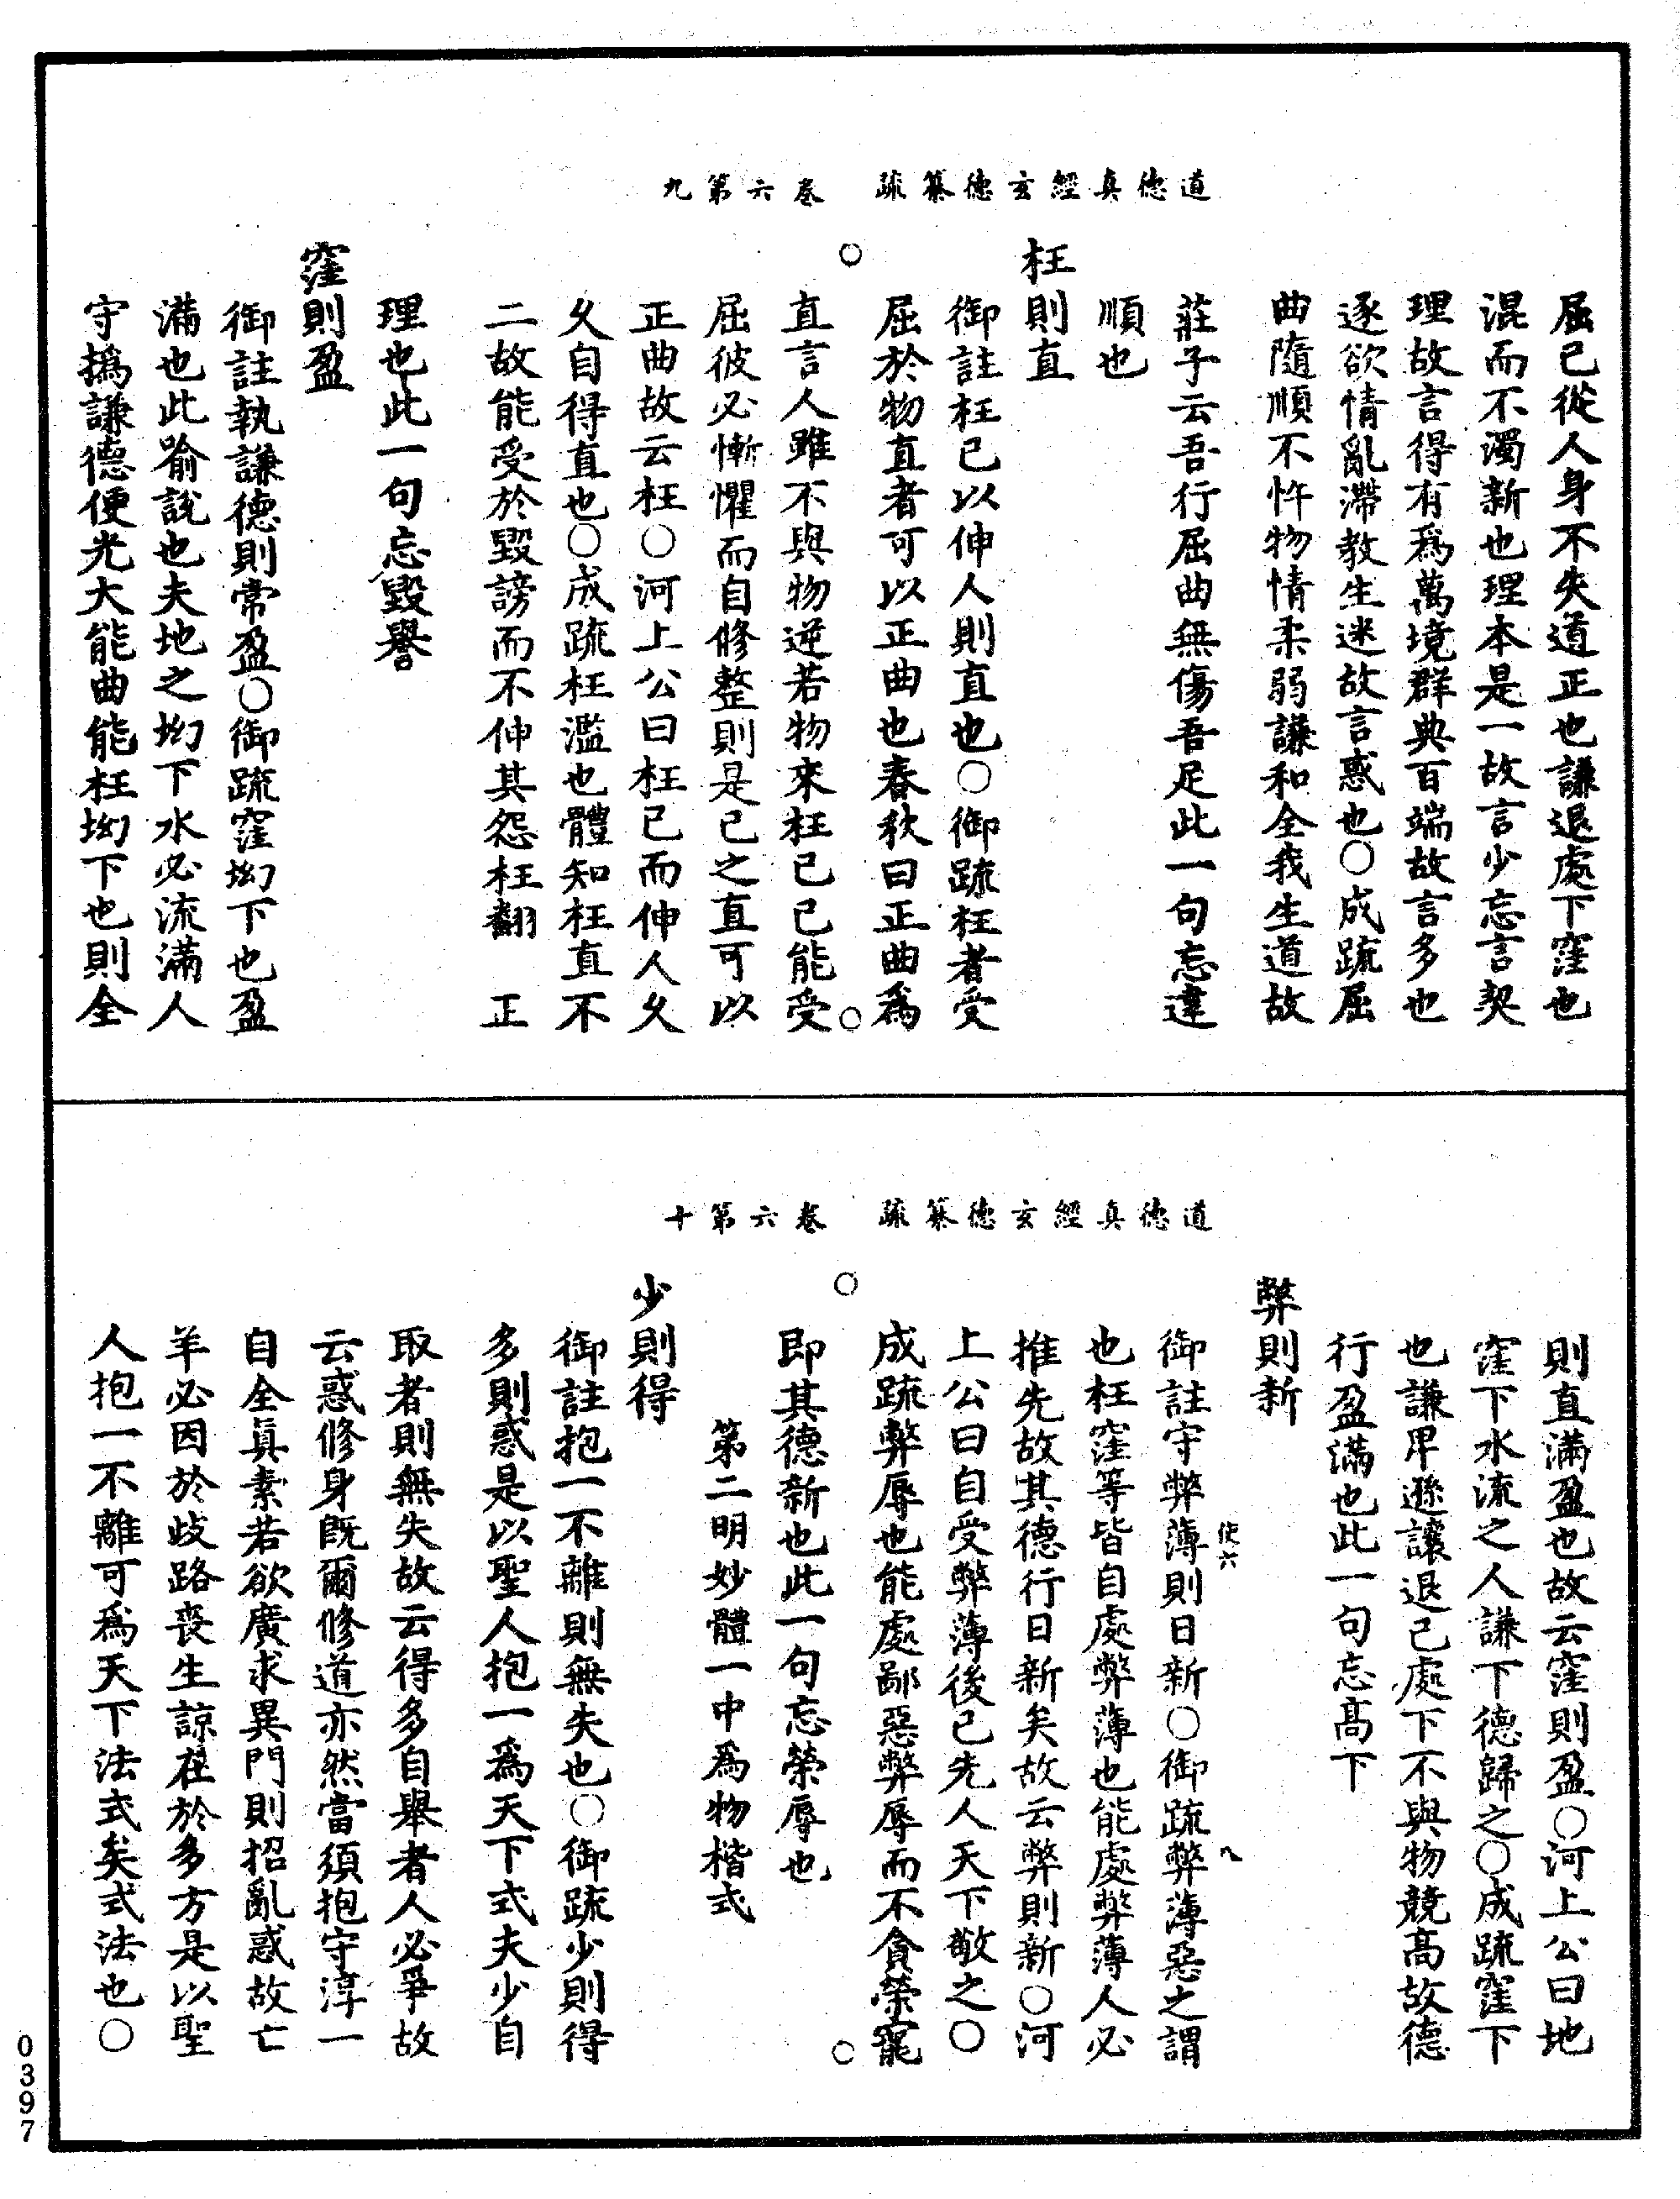 道德真經玄德纂疏　卷六第九
屈己從人身不失道正也謙退處下窪也
混而不濁新也理本是一故言少忘言契
理故言得有爲萬境群典百端故言多也
逐欲情亂滯教生迷故言惑也○成疏屈
曲隨順不忤物情柔弱謙和全我生道故
莊子云吾行屈曲無傷吾足此一句忘違
順也
枉則直
御註枉己以伸人則直也○御疏枉者受
屈於物直者可以正曲也春秋曰正曲爲
直言人雖不與物逆若物來枉己己能受
屈彼必慚懼而自修整則是己之直可以
正曲故云枉○河上公曰枉己而伸人久
久自得直也○成疏枉濫也體知枉直不
二故能受於毀謗而不伸其怨枉翻　正
理也此一句忘毀譽
窪則盈
御註執謙德則常盈○御疏窪坳下也盈
滿也此喻說也夫地之坳下水必流滿人
守撝謙德便光大能曲能枉坳下也則全
道德真經玄德纂疏　卷六第十
則直滿盈也故云窪則盈○河上公曰地
窪下水流之人謙下德歸之○成疏窪下
也謙卑遜讓退己處下不與物競高故德
行盈滿也此一句忘高下
弊則新
使六　八
御註守弊薄則日新○御疏弊薄惡之謂
也枉窪等皆自處弊薄也能處弊薄人必
推先故其德行日新矣故云弊則新○河
上公曰自受弊薄後己先人天下敬之○
成疏弊辱也能處鄙惡弊辱而不貪榮寵
即其德新也此一句忘榮辱也
第二明妙體一中爲物楷式
少則得
御註抱一不離則無失也○御疏少則得
多則惑是以聖人抱一爲天下式夫少自
取者則無失故云得多自舉者人必爭故
云惑修身既爾修道亦然當須抱守淳一
自全眞素若欲廣求異門則招亂惑故亡
羊必因於歧路喪生諒在於多方是以聖
人抱一不離可爲天下法式矣式法也○
0397